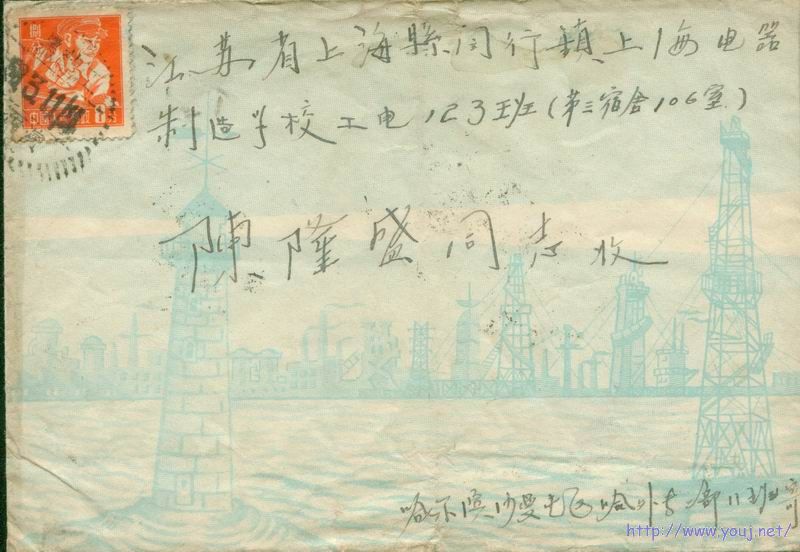 江苏省上海縣闵行鎮上海电器
制造学校工电123班(第三宿舍106室)
陳隆盛同志收
哈尔滨沙曼屯哈外专一部11班
http://www.youj.net/